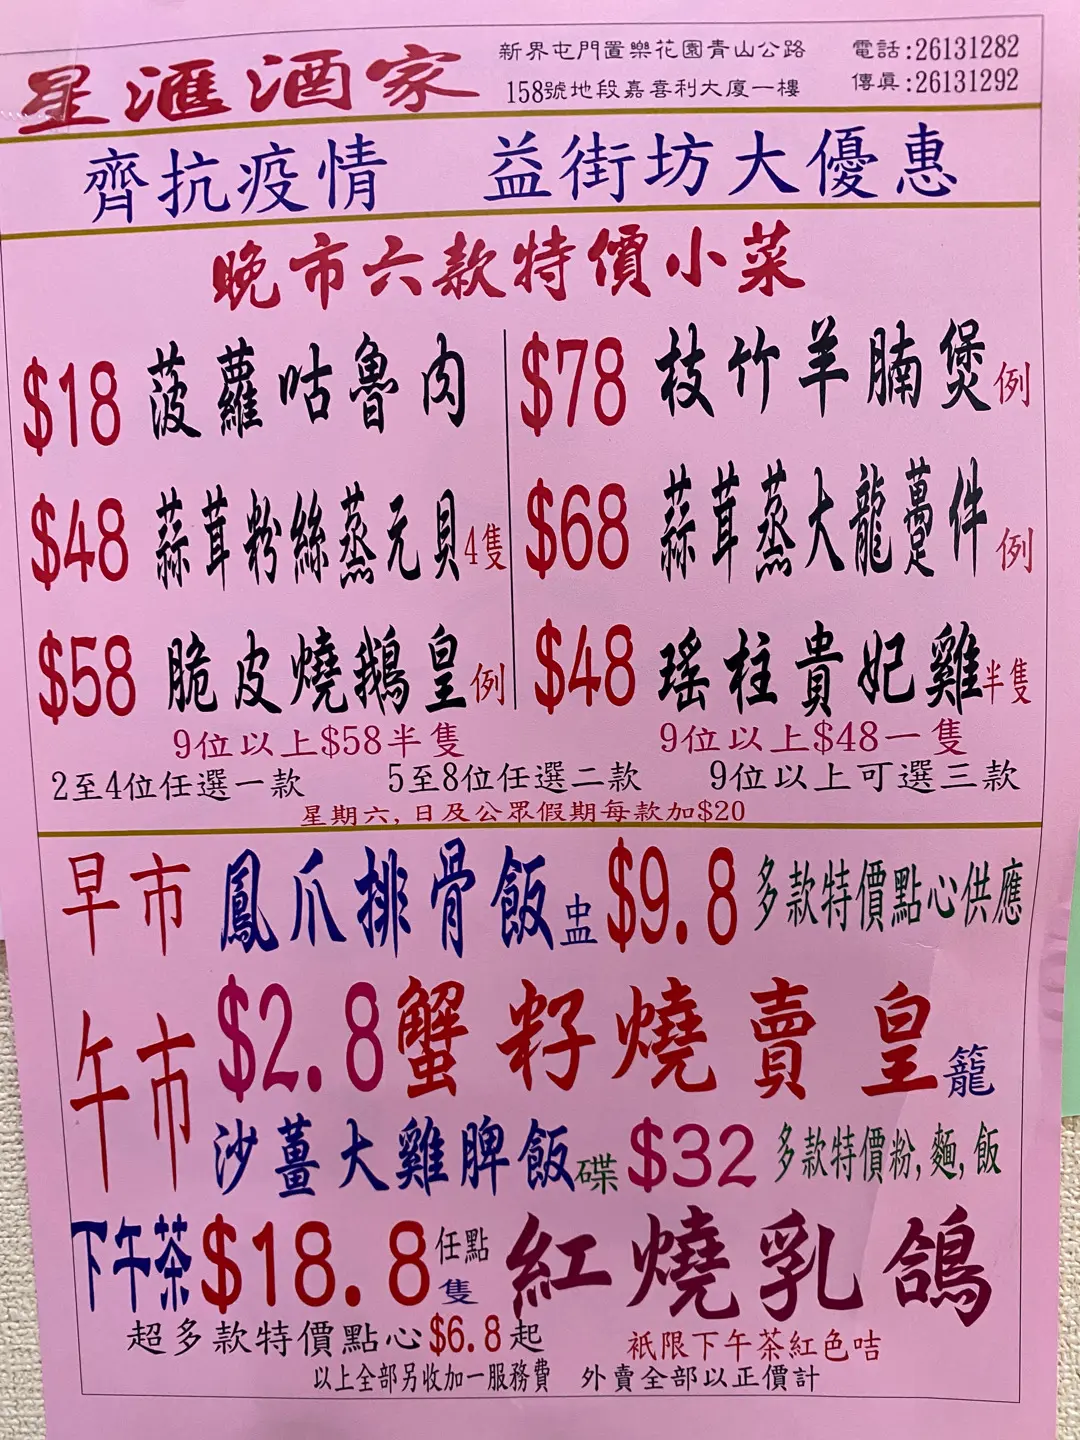 星滙酒家
新界屯門置樂花園青山公路
158號地段嘉喜利大廈一樓
電話:26131282
傳眞:26131292
齊抗疫情 益街坊大優惠
晚市六款特價小菜
$18 菠蘿咕魯肉
$78 枝竹羊腩煲例
$48 蒜茸粉絲蒸元貝4隻
$68 蒜茸蒸大龍躉件例
$58 脆皮燒鵝皇例
$48 瑤柱貴妃雞半隻
9位以上$58半隻 9位以上$48一隻
2至4位任選一款 5至8位任選二款 9位以上可選三款
星期六,日及公眾假期每款加$20
早市 鳳爪排骨飯盅 $9.8 多款特價點心供應
午市 $2.8 蟹籽燒賣皇籠
沙薑大雞脾飯碟 $32 多款特價粉,麵,飯
下午茶 $18.8 任點隻 紅燒乳鴿
超多款特價點心$6.8起 祇限下午茶紅色咭
以上全部另收加一服務費 外賣全部以正價計